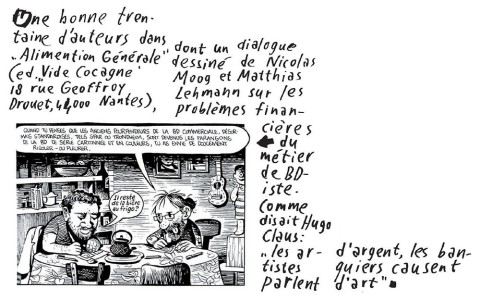 Une bonne tren-
taine d'auteurs dans
„Alimention Générale"
(ed. „Vide Cocagne"
18 rue Geoffroy
Drouet, 44000 Nantes),
dont un dialogue
dessiné de Nicolas
Moog et Matthias
Lehmann sur les
problèmes finan-
cières
du
métier
de BD-
iste.
Comme
disait Hugo
Claus:
„les ar-
tistes
parlent
d'argent, les ban-
quiers causent
d'art"
QUAND TU PENSES QUE LES ANCIENS DE LA BD COMMERCIALE, DÉSOR-
MAIS STANDARDISÉS, TELS SFAR OU TRONDHEIM, SONT DEVENUS LES PARANGONS
DE LA BD DE SÉRIE CARTONNÉE ET EN COULEURS, TU AS ENVIE DE DOUCEMENT
RIGOLER - OU PLEURER.
reste
de la bière
au frigo?